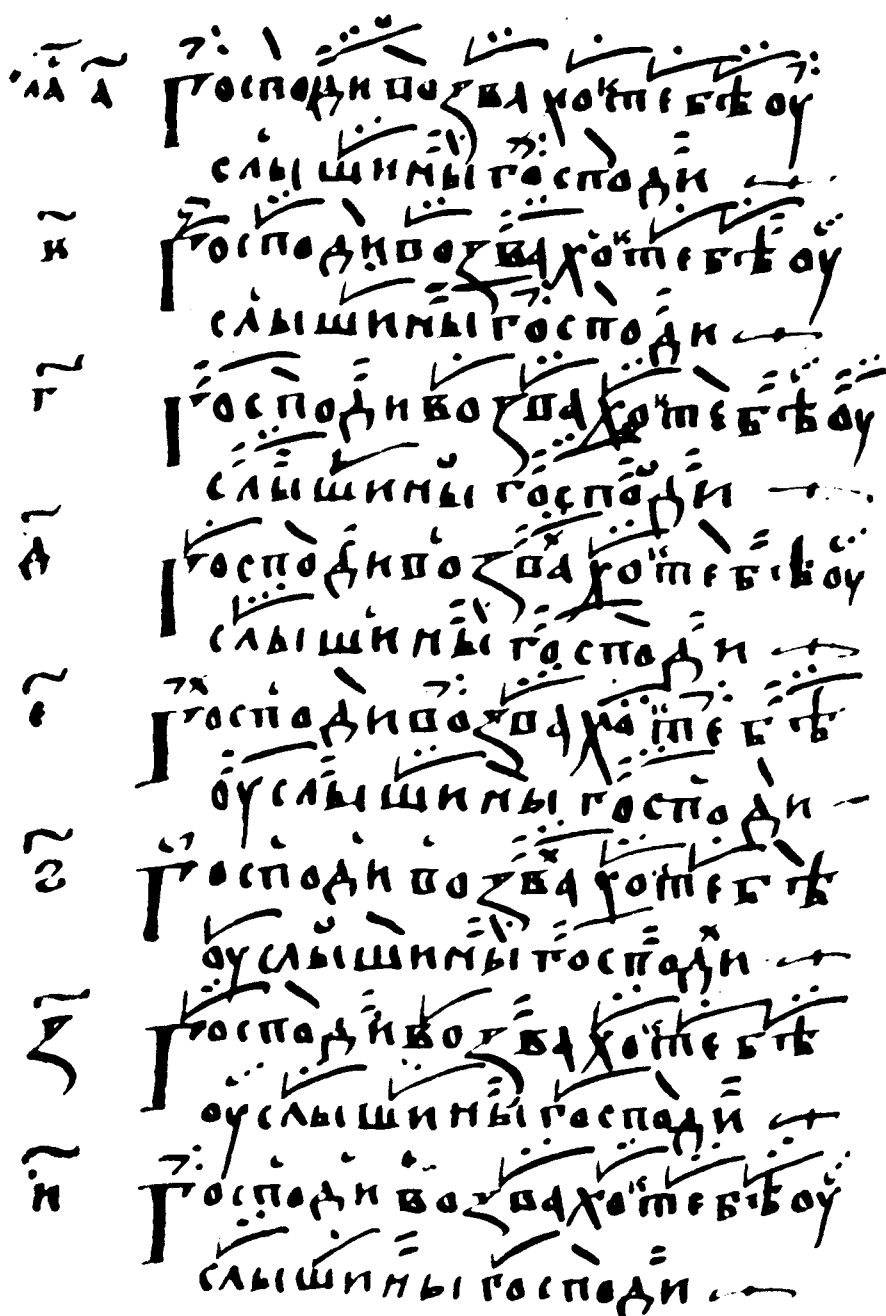 гла҃ а҃ Господи возвахо к тебѣ оу
слышины господи
в҃ Господи возвахо к тебѣ оу
слышины господи
г҃ Господи возвахо к тебѣ оу
слышины господи
д҃ Господи возвахо к тебѣ оу
слышины господи
е҃ Господи возвахо к тебѣ
оуслышины господи
ѕ҃ Господи возвахо к тебѣ
оуслышины господи
з҃ Господи возвахо к тебѣ
оуслышины господи
и҃ Господи возвахо к тебѣ оу
слышины господи